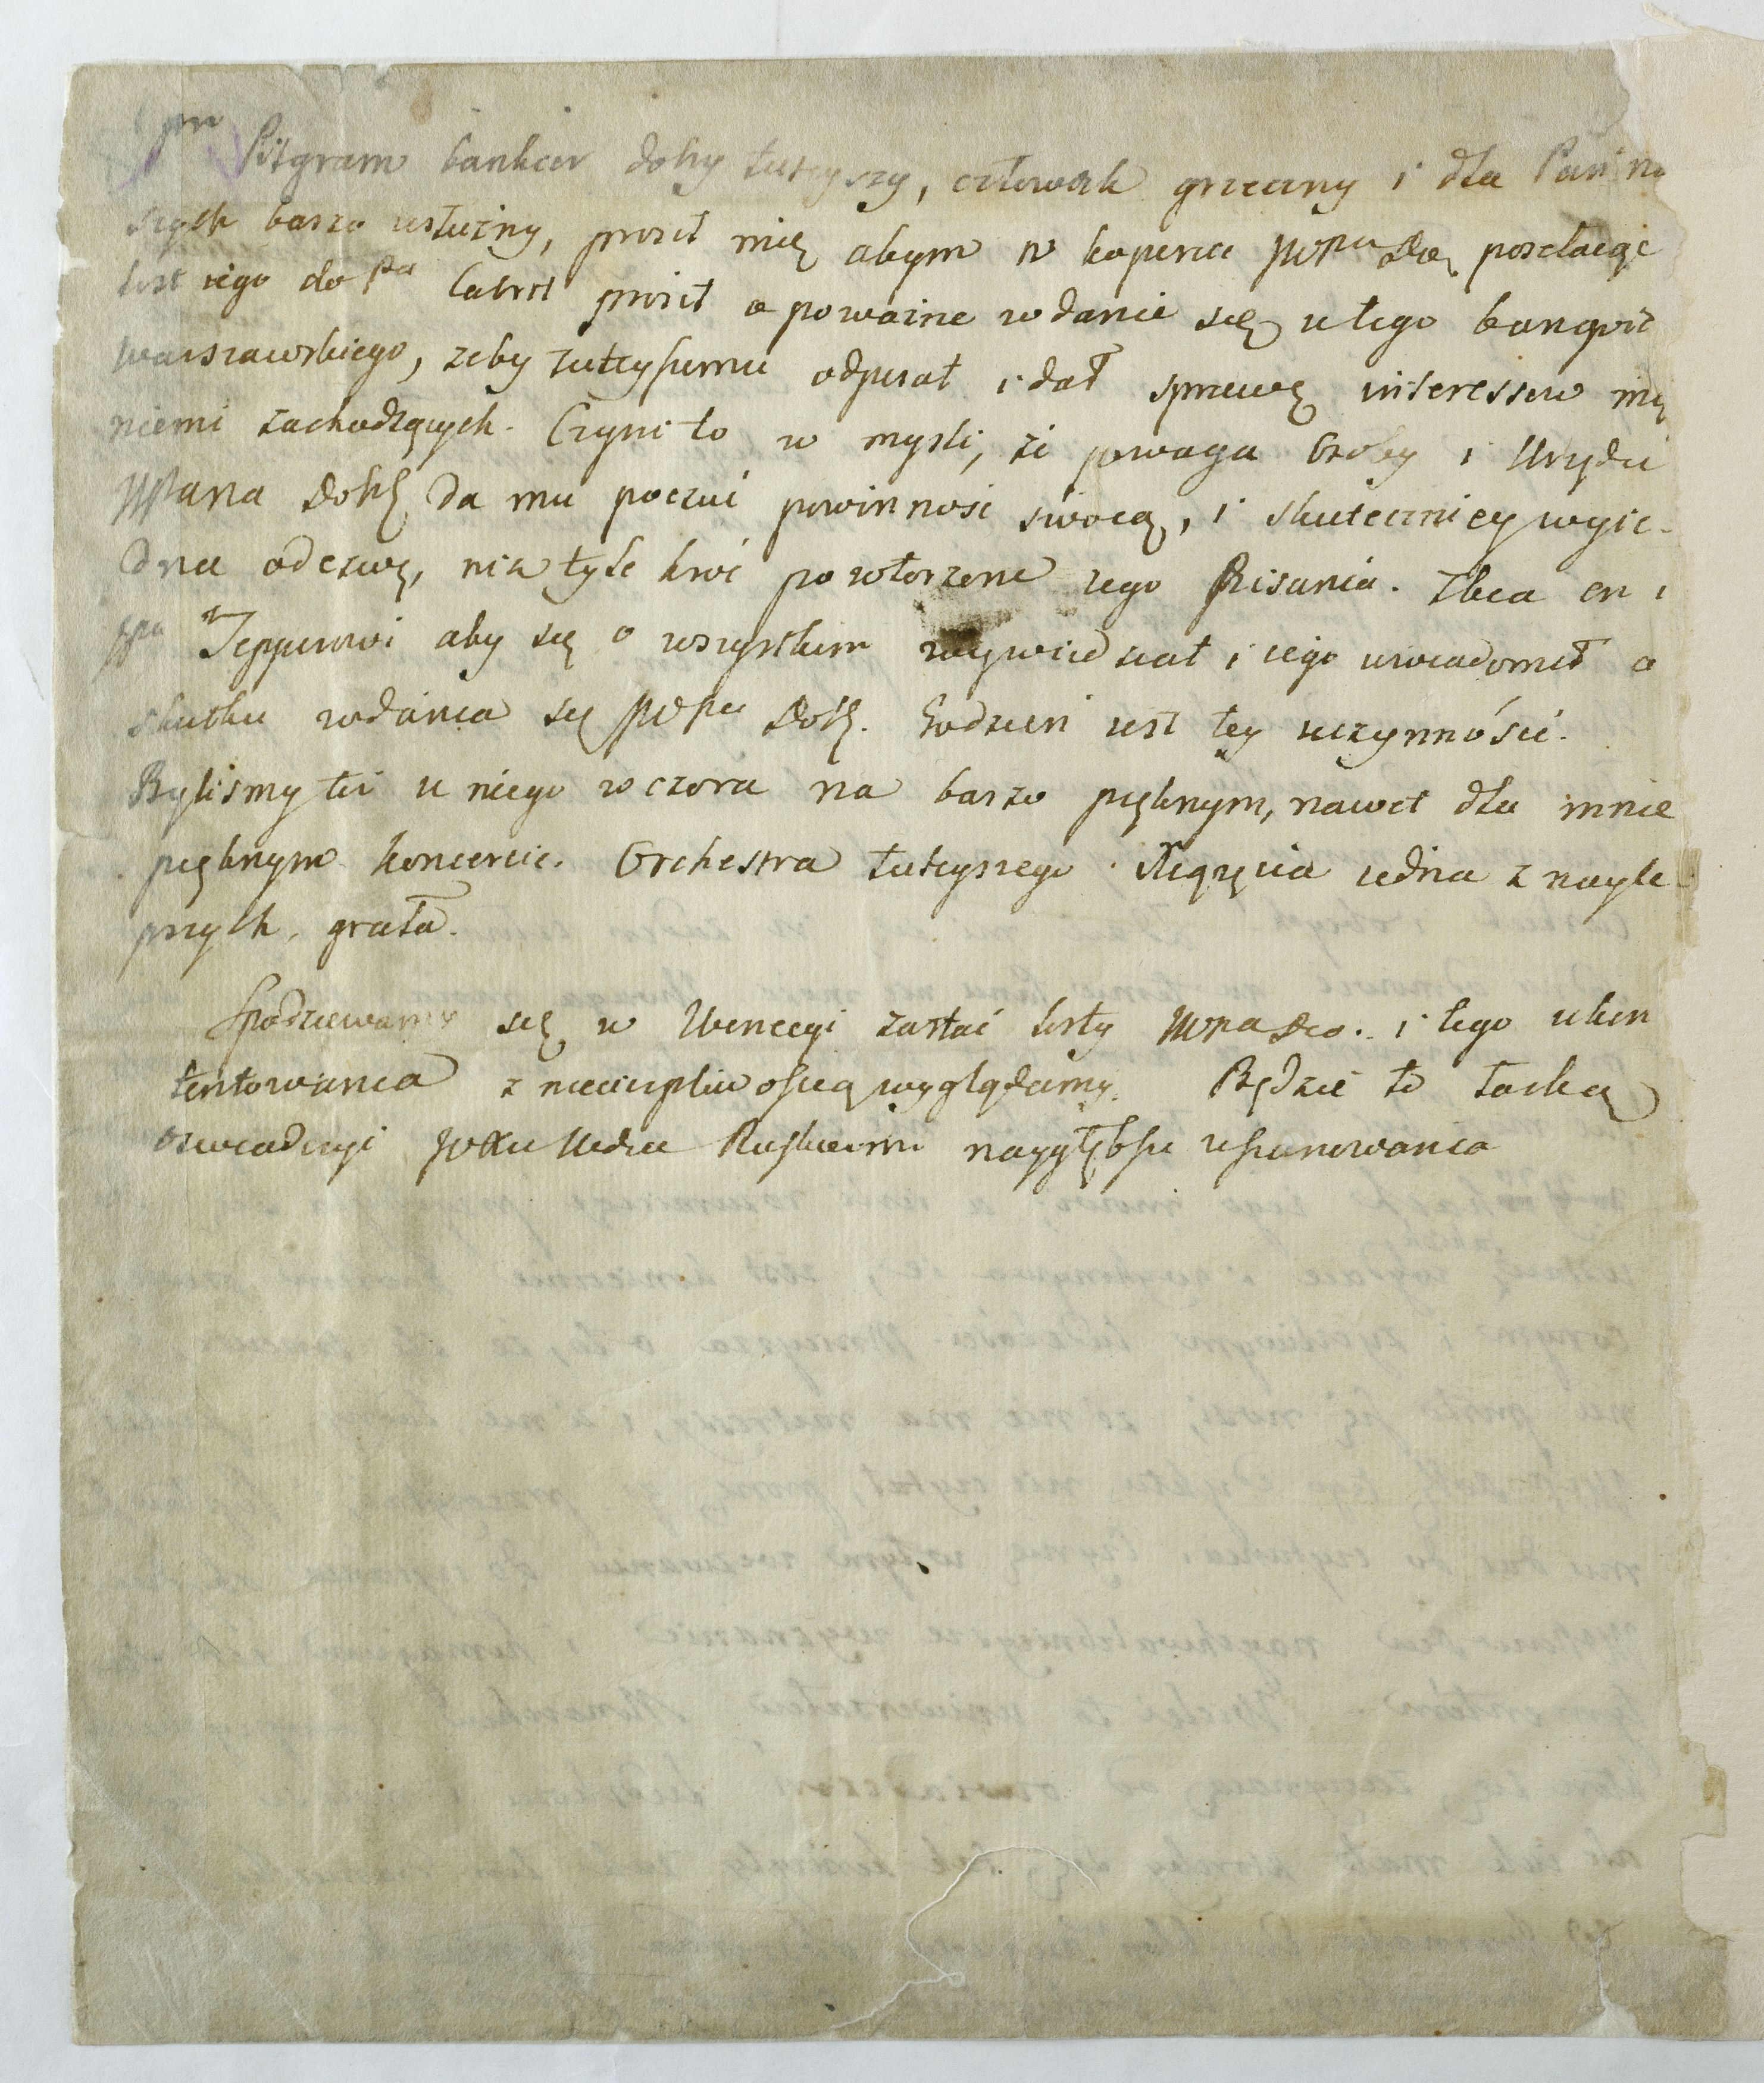 Jpn Pitgram bankier dosyć tuteyszy, człowiek grzeczny i dla Panów na
szych barzo usłużny, prosił mię abym w kopercie JWPa Do. posełaiąc
list iego do Pa Cabrit prosił o poważne wdanie się u tego banqvie
warszawskiego, zeby tuteyszemu odpisał i dał sprawę interessow mię
niemi zachodzących. Czyni to w mysli, że powaga Osoby i Urzędu
WPana Dobr. da mu poczuć powinnosć swoią, i skuteczniey wyie-
dna odezwę, niż tyle kroć powtorzone iego Pisania. Zleca on i
Jpu Tepperowi aby się o wszystkim wywiedział i iego uwiadomił o
skutku wdania się JWPa Dob. Godzien iest tey uczynności.
Bylismy też u niego wczora na barzo pięknym, nawet dla mnie
pięknym koncercie. Orchestra tuteyszego Xiążęcia iedna z nayle
pszych, grała.
Spodziewamy się w Wenecyi zastać listy JWPa Do. i tego uken
tentowania z niecierpliwością wyglądamy. Będzie to łaską
oswiadczyć JWXu Wdzie Ruskiemu nayygłębsze uszanowanie